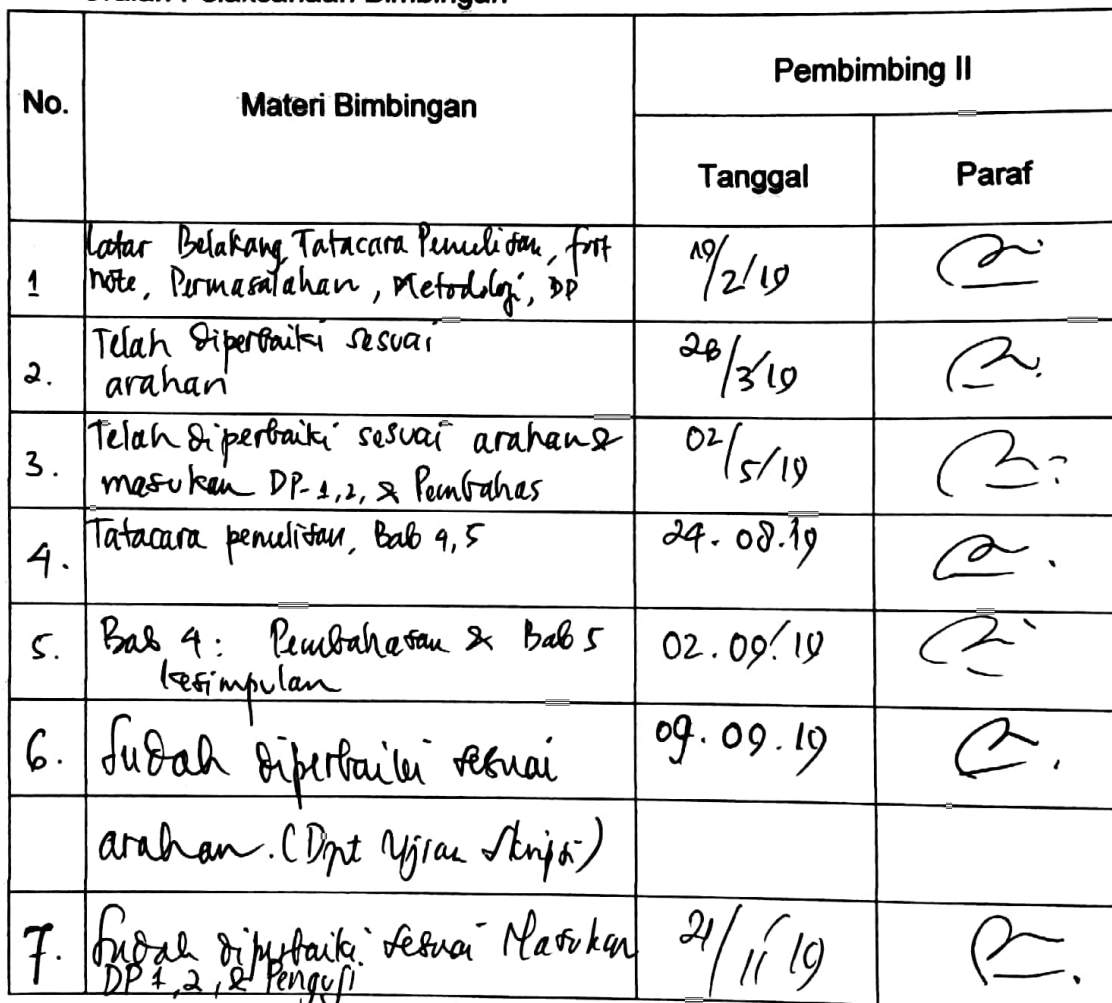 No. Materi Bimbingan Pembimbing II
Tanggal Paraf
1 Latar Belakang, Tatacara Penulisan, foot
note, Permasalahan, Metodologi, DP 19/2/19
2. Telah diperbaiki sesuai
arahan 28/3/19
3. Telah diperbaiki sesuai arahan &
masukan DP-1,2, & Pembahas 02/5/19
4. Tatacara penulisan, Bab 4,5 24.08.19
5. Bab 4: Pembahasan & Bab 5
kesimpulan 02.09.19
6. Sudah diperbaiki sesuai 09.09.19
arahan. (Dpt Ujian Skripsi)
7. Sudah diperbaiki sesuai Masukan
DP 1,2, & Penguji 21/11/19